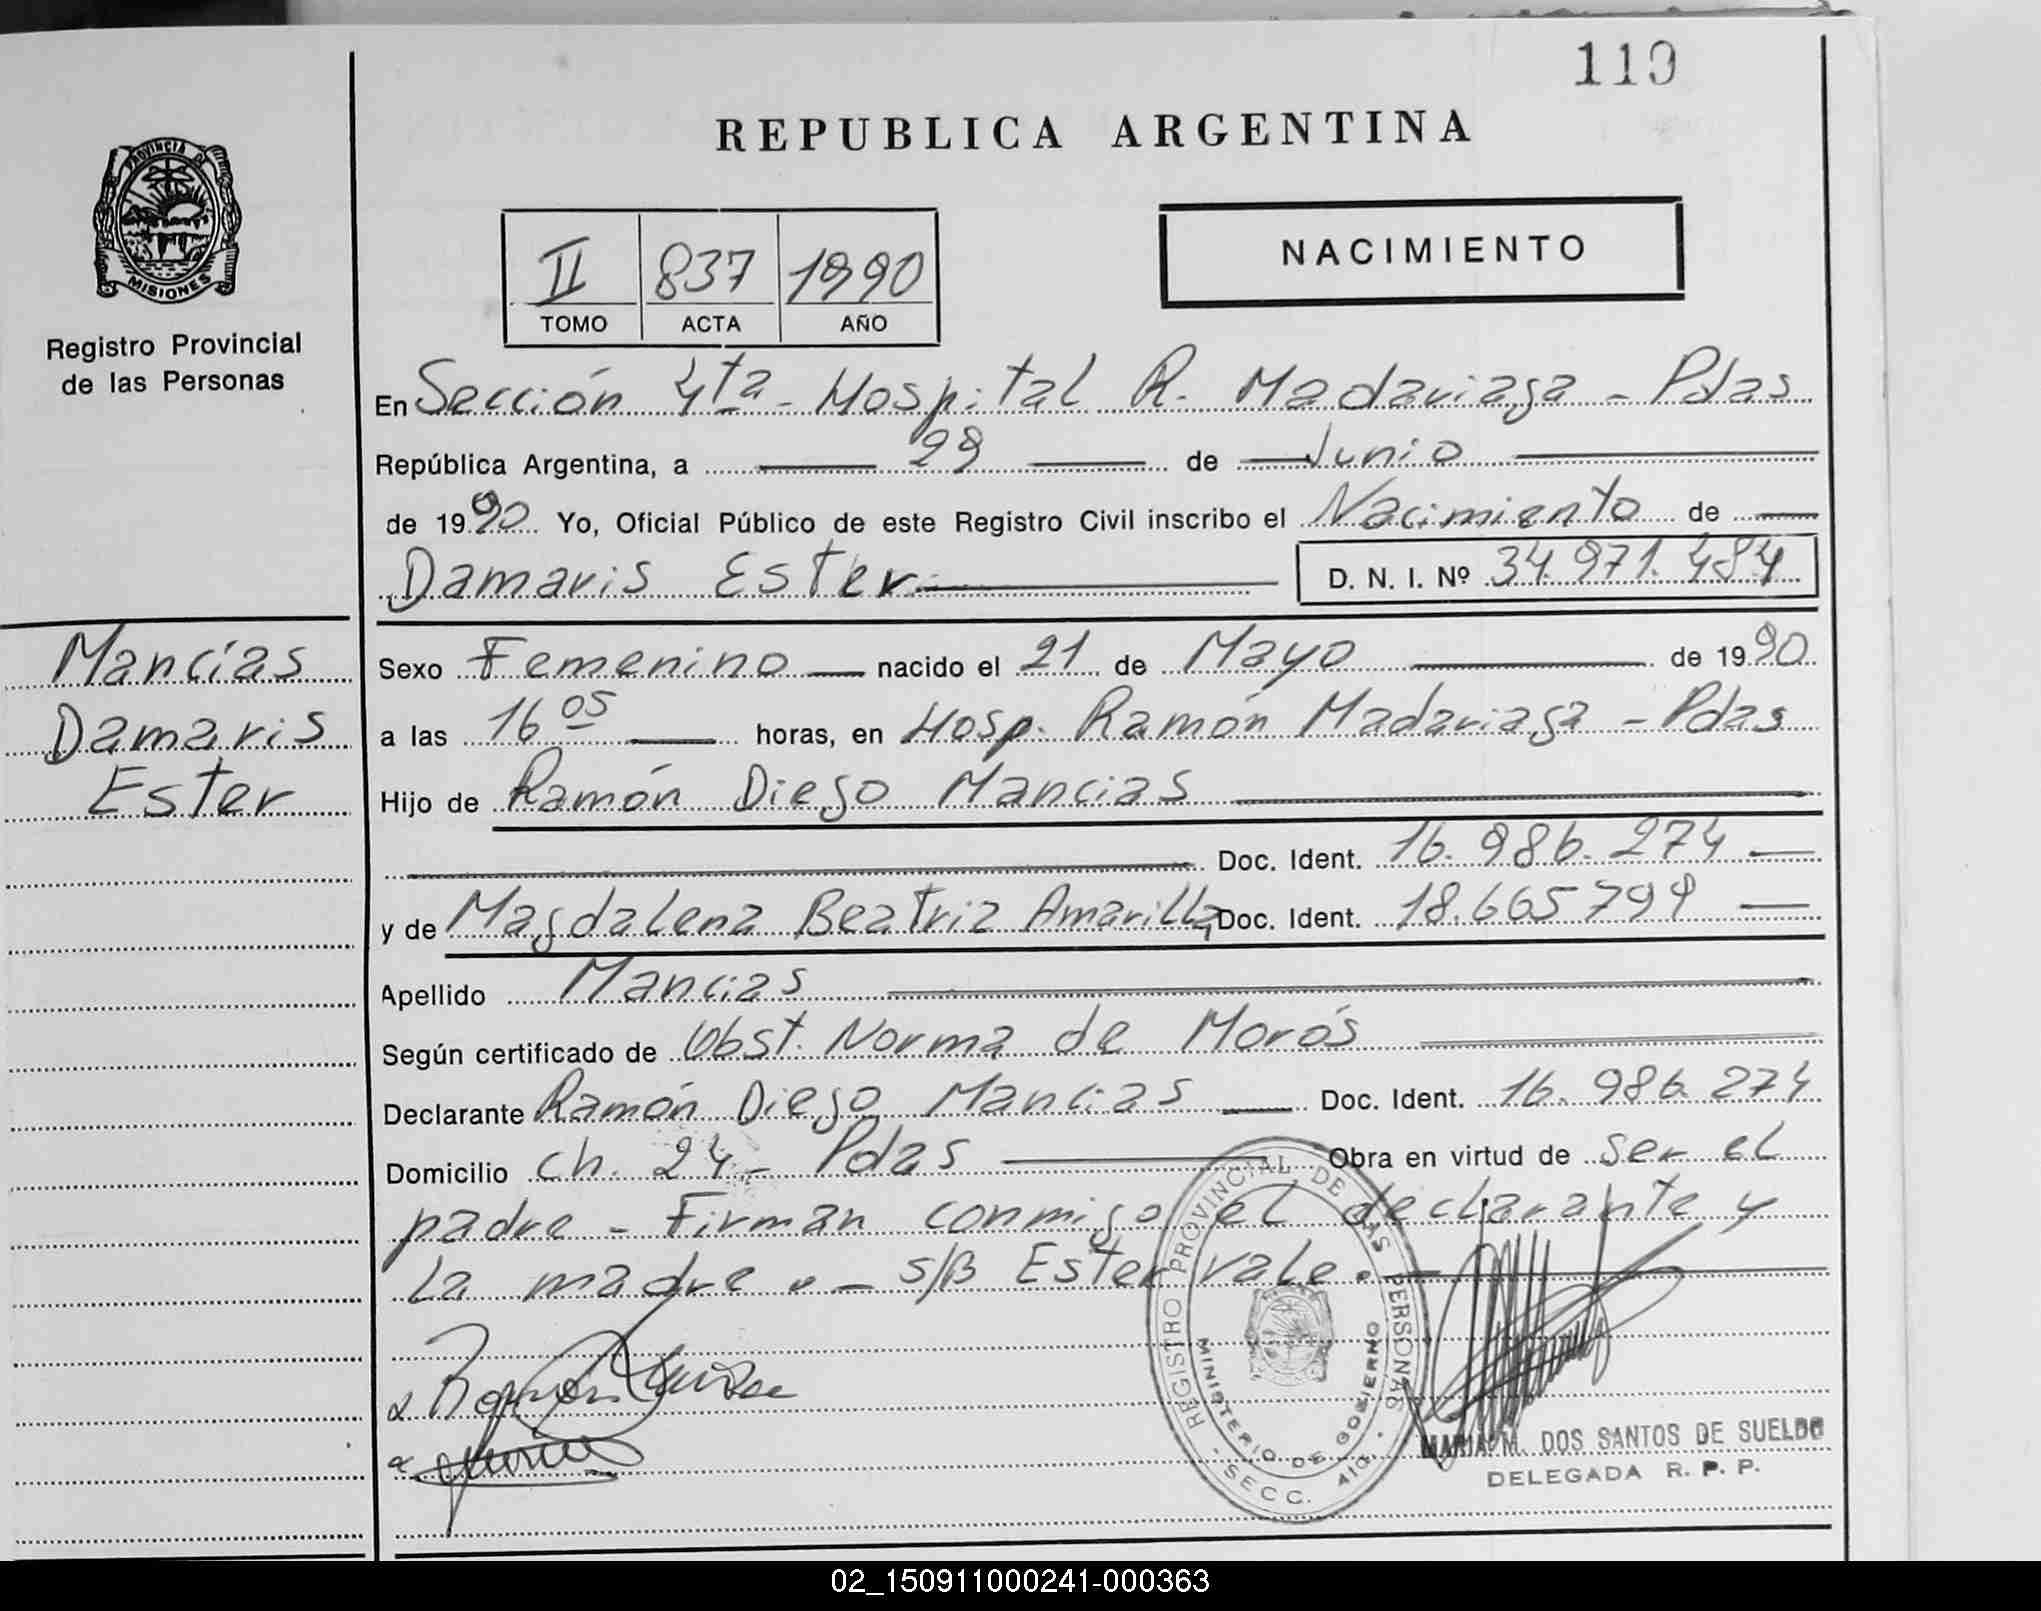 110
REPUBLICA ARGENTINA
PROVINCIA DE
MISIONES
Registro Provincial
de las Personas
II 837 1990
TOMO ACTA AÑO
NACIMIENTO
En Sección 4ta - Hospital R. Madariaga - Pdas
República Argentina, a 29 de Junio
de 1990 Yo, Oficial Público de este Registro Civil inscribo el Nacimiento de
Damaris Ester D. N. I. Nº 34.971.484
Mancías
Damaris
Ester
Sexo Femenino nacido el 21 de Mayo de 1990
a las 16 05 horas, en Hosp. Ramón Madariaga - Pdas
Hijo de Ramón Diego Mancias
Doc. Ident. 16.986.274
y de Magdalena Beatriz Amarilla Doc. Ident. 18.665794
Apellido Mancias
Según certificado de Obst. Norma de Morós
Declarante Ramón Diego Mancias Doc. Ident. 16.986.274
Domicilio ch. 24 - Pdas Obra en virtud de ser el
padre - Firman conmigo el declarante y
la madre - s/B Ester vale.
REGISTRO PROVINCIAL DE LAS PERSONAS
MINISTERIO DE GOBIERNO
- SECC. 4ta. -
MARIA M. DOS SANTOS DE SUELDO
DELEGADA R. P. P.
02_150911000241-000363